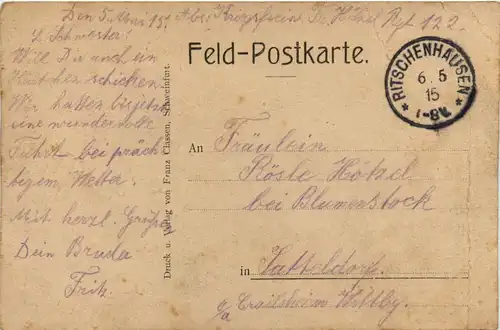 Den 5. Mai 15. Abs. Kriegsfreiw. Fr. Hökel Rgt 122
L. Schwester!
Will Dir auch ein
Kärtchen schicken
Wir hatten bis jetzt
eine wundervolle
Fahrt bei präch
tigem Wetter.
Mit herzl. Grüße
Dein Bruder
Fritz.
Druck u. Verlag von Franz Classen, Schweinfurt.
Feld-Postkarte.
RITSCHENHAUSEN
6. 5
15
1-8V.
An Fräulein
Rösle Hökel
bei Blumenstock
in Satteldorf.
o/a Crailsheim Wttbg.